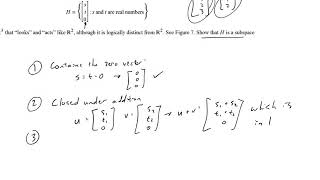 H = { [ s t 0 ] : s and t are real numbers }
³ that "looks" and "acts" like R², although it is logically distinct from R². See Figure 7. Show that H is a subspace
① Contains the zero vector:
s = t = 0 → [ 0 0 0 ] ✓
② Closed under addition
u = [ s₁ t₁ 0 ] v = [ s₂ t₂ 0 ] → u + v = [ s₁ + s₂ t₁ + t₂ 0 ] which is
in
③